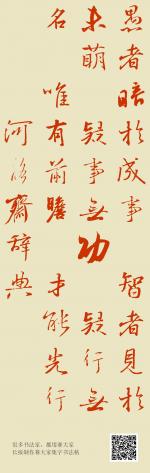 愚者暗於成事 智者見於
未萌 疑事無功 疑行無
名 唯有前瞻 才能先行
河洛齋辭典
很多书法家，都用兼大家
长按制作兼大家集字书法帖